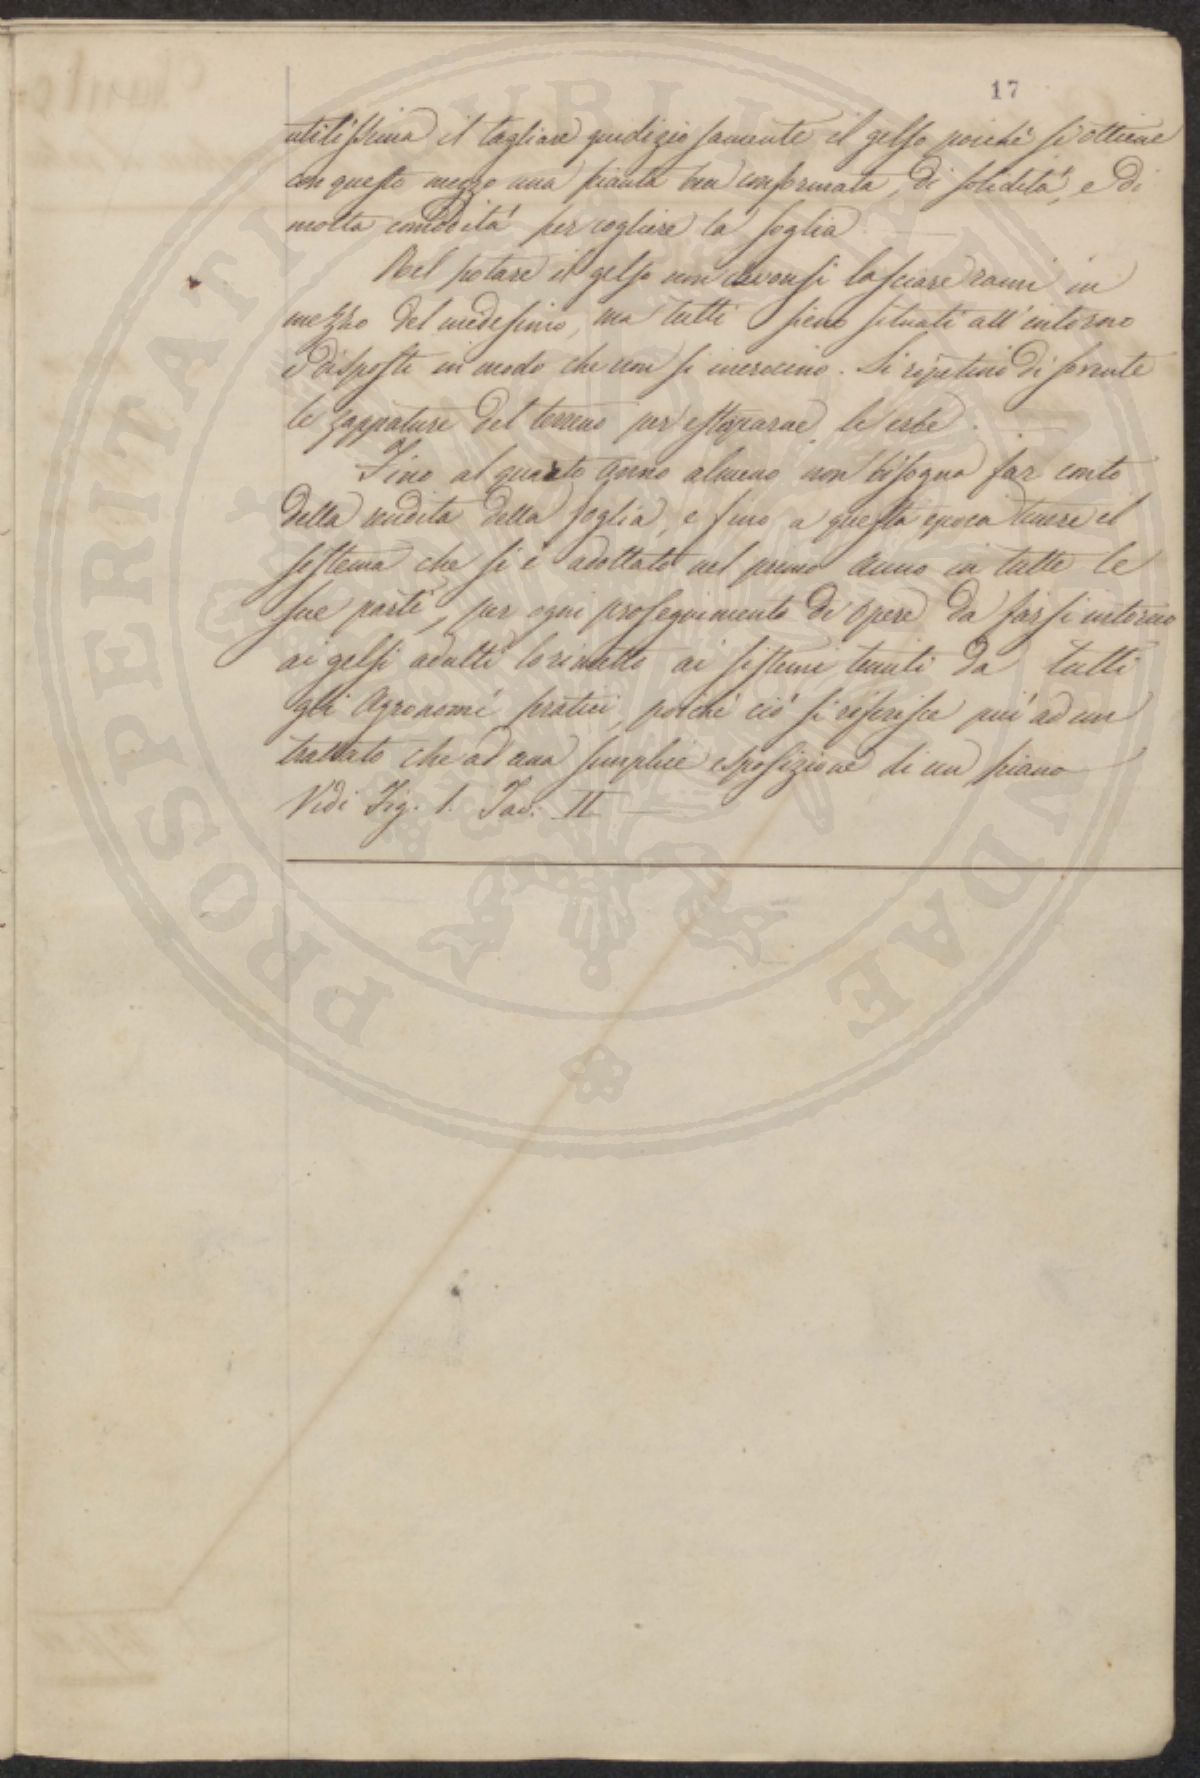 17
utilissima il tagliare giudiziosamente il gelso poichè si ottiene
con questo mezzo una pianta ben conformata, di solidità, e di
molta comodità per cogliere la foglia
Nel potare il gelso non devonsi lasciare rami in
mezzo del medesimo, ma tutti sieno situati all'intorno
e disposti in modo che non si incrocino. Si ripetino di sovente
le zappature del terreno per estirparne le erbe.
Fino al quarto anno almeno non bisogna far conto
della vendita della foglia, e fino a questa epoca tenere il
sistema che si è adottato nel primo anno in tutte le
sue parti, per ogni proseguimento di opere da farsi intorno
ai gelsi adulti lo rimetto ai sistemi tenuti da tutti
gli Agronomi pratici, poichè ciò si riferisce più ad un
trattato che ad una semplice esposizione di un piano
Vidi Fig. 1. Tav: II
PROSPERITATI PUBLICAE AUGENDAE